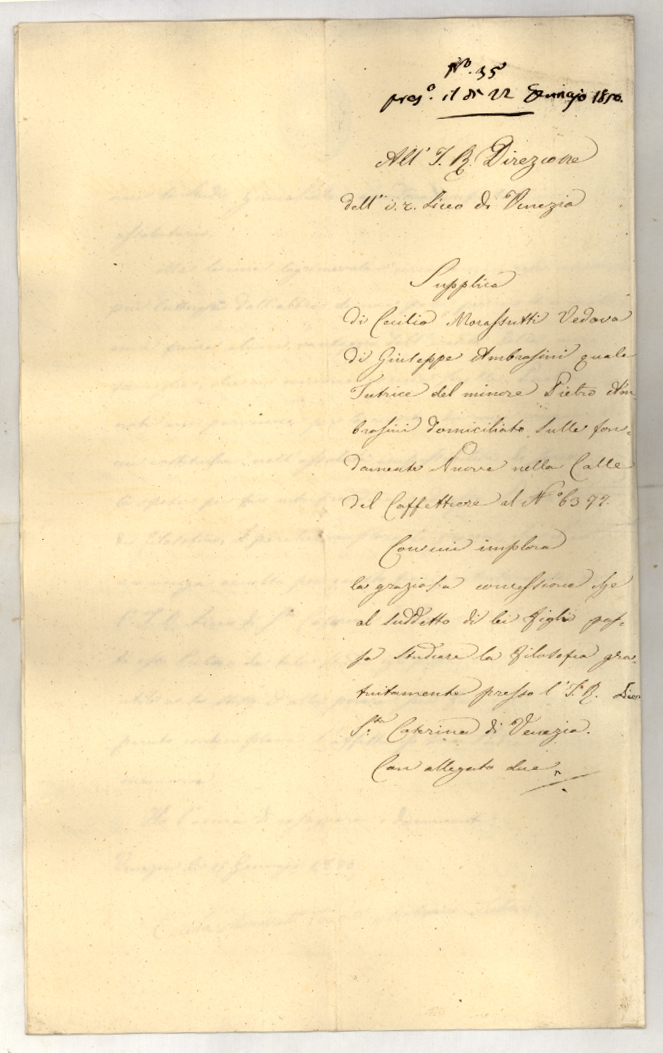 N.º 35
pres.º il dì 22 Gennajo 1850.
All' I. R. Direzione
dell' i. r. Liceo di Venezia
Supplica
di Cecilia Morassutti Vedova
di Giuseppe Ambrosini quale
Tutrice del minore Pietro Am
brosini domiciliato sulle fon-
damente Nuove nella Calle
del Caffettiere al N.º
Con cui implora
la graziosa concessione che
al suddetto di lei figlio pos-
sa studiare la filosofia gra-
tuitamente presso l' I. R. Liceo
S.ta Caterina di Venezia.
Con allegato due